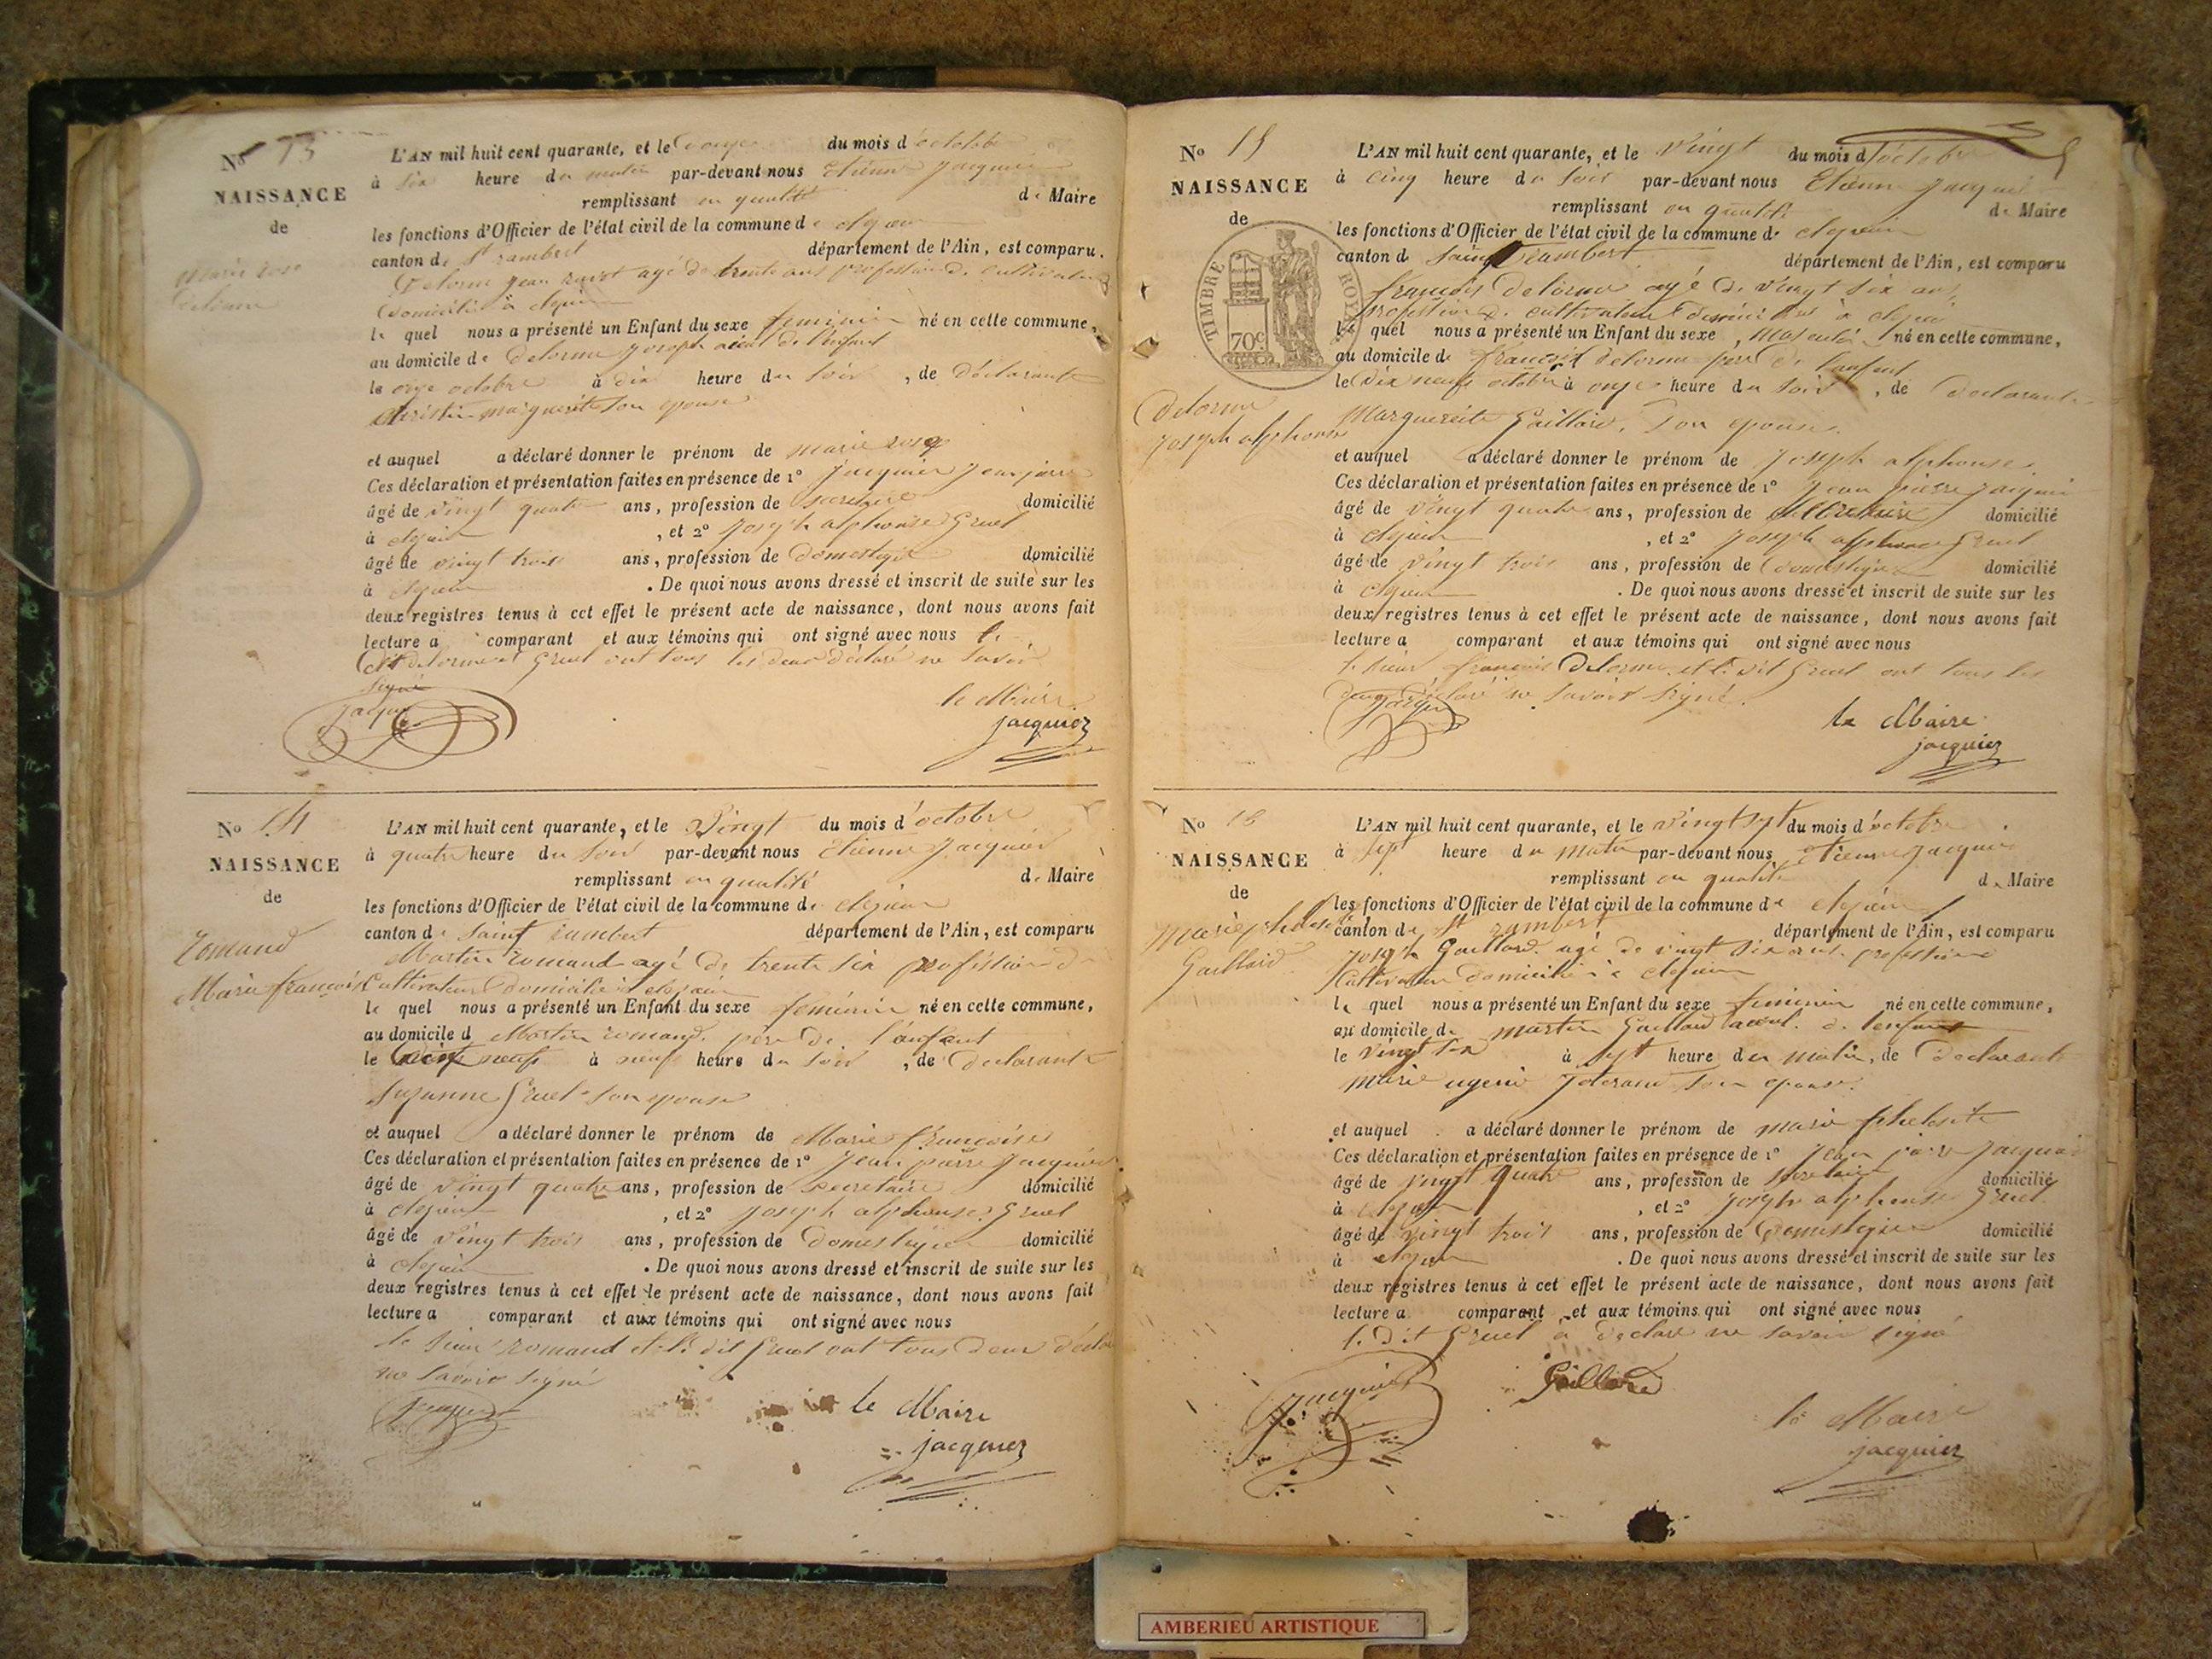 No 13
NAISSANCE
de
Marie rose
L'AN mil huit cent quarante, et le onze du mois d'octobre
à six heure du matin par-devant nous etienne jacquier
remplissant en qualité de Maire
les fonctions d'Officier de l'état civil de la commune de
canton de St rambert département de l'Ain, est comparu.
Delorme jean agé de trente ans profession de cultivateur
domicilié à
le quel nous a présenté un Enfant du sexe feminin né en cette commune,
au domicile de delorme joseph aieul de l'enfant
le onze octobre à dix heure du soir, de déclarante
marguerite son epouse
et auquel a déclaré donner le prénom de marie rose
Ces déclaration et présentation faites en présence de 1º jacquier jean pierre
âgé de vingt quatre ans, profession de secretaire domicilié
à , et 2º joseph alphonse Gruel
âgé de vingt trois ans, profession de domestique domicilié
à . De quoi nous avons dressé et inscrit de suite sur les
deux registres tenus à cet effet le présent acte de naissance, dont nous avons fait
lecture a comparant et aux témoins qui ont signé avec nous le
dit delorme et Gruel ont tous les deux déclaré ne savoir
signé
jacquier
le Maire
jacquier
No 14
NAISSANCE
de
romand
Marie françoise
L'AN mil huit cent quarante, et le Vingt du mois d'octobre
à quatre heure du soir par-devant nous etienne jacquier
remplissant en qualité de Maire
les fonctions d'Officier de l'état civil de la commune de
canton de Saint rambert département de l'Ain, est comparu
Martin romand agé de trente six profession de
Cultivateur domicilié à
le quel nous a présenté un Enfant du sexe feminin né en cette commune,
au domicile d Martin romand père de l'enfant
le dix neuf à neuf heure du soir, de declarante
Suzanne Gruel son epouse
et auquel a déclaré donner le prénom de Marie françoise
Ces déclaration et présentation faites en présence de 1º jean pierre jacquier
âgé de vingt quatre ans, profession de secretaire domicilié
à , et 2º joseph alphonse Gruel
âgé de vingt trois ans, profession de domestique domicilié
à . De quoi nous avons dressé et inscrit de suite sur les
deux registres tenus à cet effet le présent acte de naissance, dont nous avons fait
lecture a comparant et aux témoins qui ont signé avec nous
le sieur romand et le dit Gruel ont tous deux déclaré
ne savoir signé
le Maire
jacquier
No 15
NAISSANCE
de
TIMBRE ROYAL
70c
Delorme
joseph alphonse
L'AN mil huit cent quarante, et le Vingt du mois d'octobre
à cinq heure du soir par-devant nous Etienne jacquier
remplissant en qualité de Maire
les fonctions d'Officier de l'état civil de la commune de
canton d Saint rambert département de l'Ain, est comparu
françois Delorme agé de vingt six ans
profession de cultivateur domicilié à
le quel nous a présenté un Enfant du sexe masculin né en cette commune,
au domicile de françois delorme père de l'enfant
le dix neuf octobre à onze heure du soir, de declarante
Marguerite Gaillard, son epouse.
et auquel a déclaré donner le prénom de joseph alphonse
Ces déclaration et présentation faites en présence de 1º jean pierre jacquier
âgé de vingt quatre ans, profession de domicilié
à , et 2º joseph alphonse Gruel
âgé de vingt trois ans, profession de domestique domicilié
à . De quoi nous avons dressé et inscrit de suite sur les
deux registres tenus à cet effet le présent acte de naissance, dont nous avons fait
lecture a comparant et aux témoins qui ont signé avec nous
le sieur françois Delorme et le dit Gruel ont tous les
deux déclaré ne savoir signé.
le Maire
jacquier
No 16
NAISSANCE
de
Gaillard
L'AN mil huit cent quarante, et le vingt sept du mois d'octobre
à sept heure du matin par-devant nous etienne jacquier
remplissant en qualité de Maire
les fonctions d'Officier de l'état civil de la commune de
canton de St rambert département de l'Ain, est comparu
joseph Gaillard agé de vingt six ans profession
Cultivateur domicilié à
le quel nous a présenté un Enfant du sexe feminin né en cette commune,
au domicile de martin Gaillard aieul de l'enfant
le vingt six à sept heure du matin, de declarante
marie son epouse.
et auquel a déclaré donner le prénom de marie
Ces déclaration et présentation faites en présence de 1º jean jacquier
âgé de vingt quatre ans, profession de secretaire domicilié
à , et 2º joseph alphonse Gruel
âgé de vingt trois ans, profession de domestique domicilié
à . De quoi nous avons dressé et inscrit de suite sur les
deux registres tenus à cet effet le présent acte de naissance, dont nous avons fait
lecture a comparant et aux témoins qui ont signé avec nous
le dit Gruel a declaré ne savoir signé
jacquier
Gaillard
le Maire
jacquier
AMBERIEU ARTISTIQUE